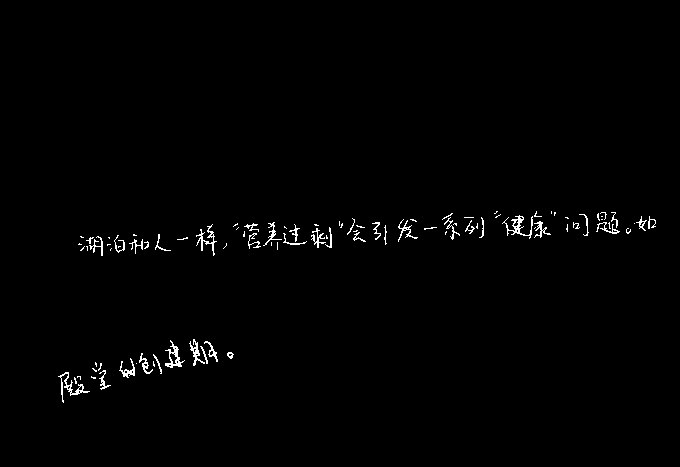 湖泊和人一样，“营养过剩”会引发一系列“健康”问题。如
殿堂的创建期。